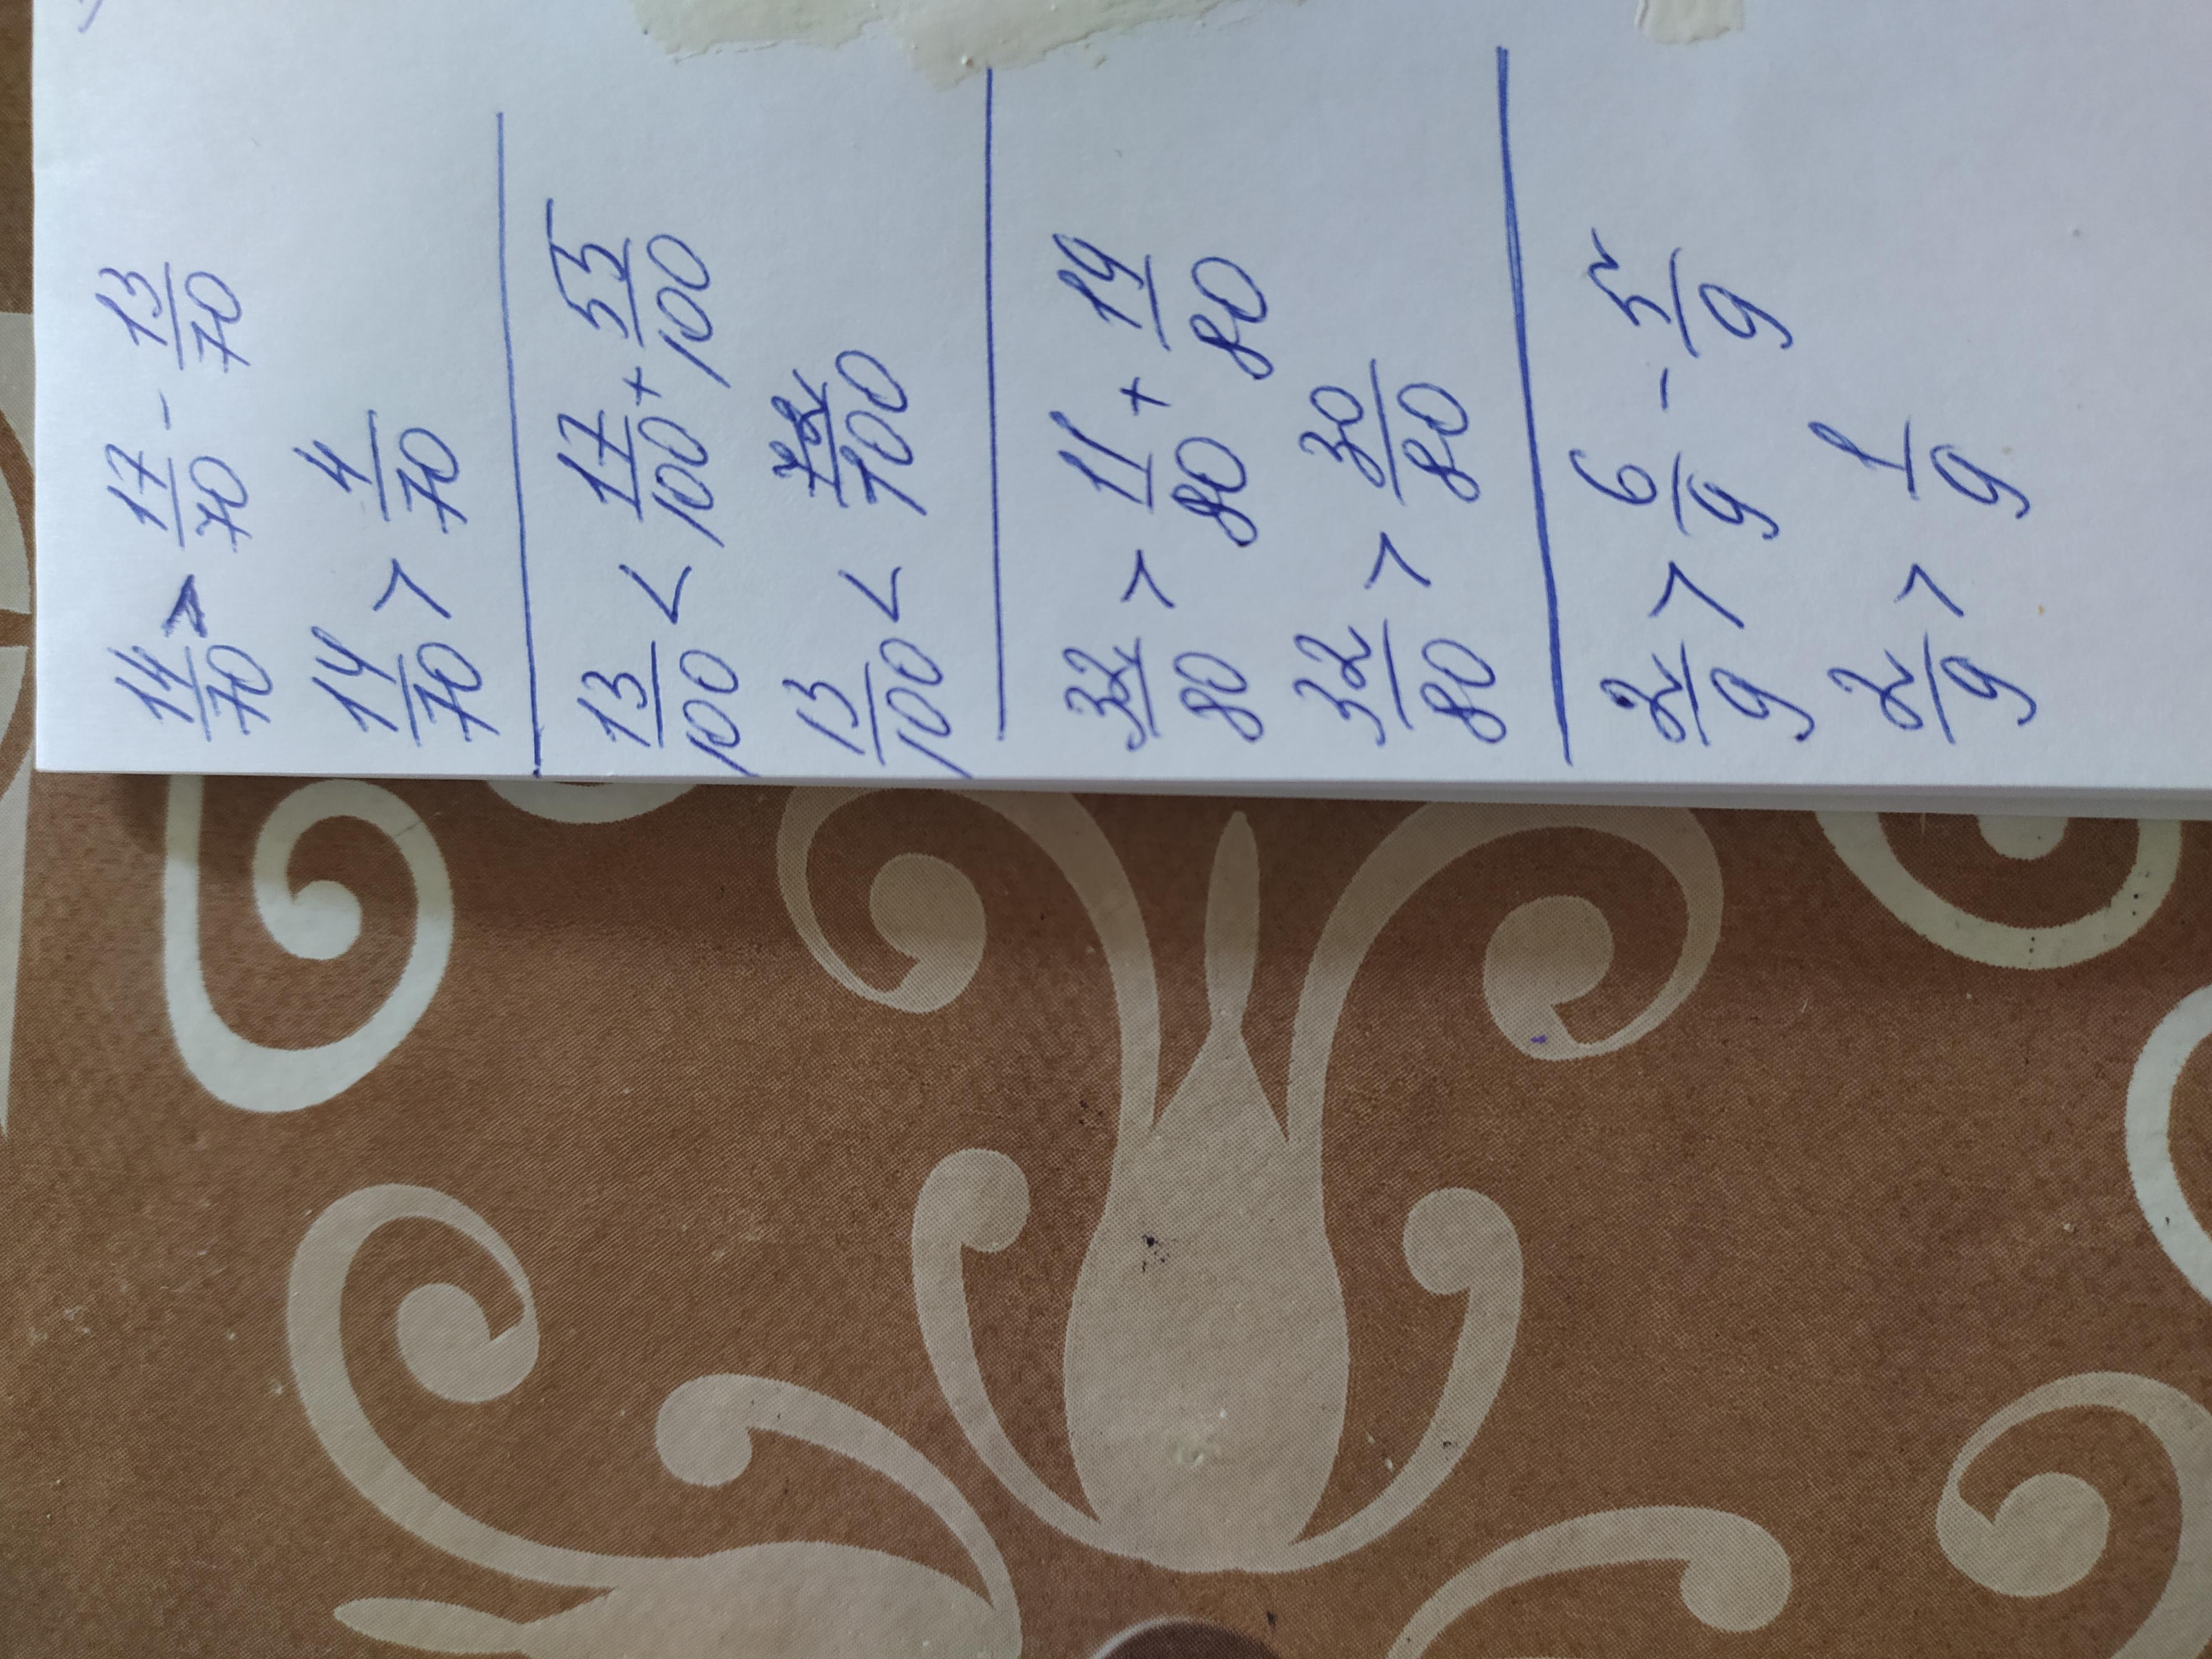 14/70 > 17/70 - 13/70
14/70 > 4/70
13/100 < 17/100 + 55/100
13/100 < 72/100
32/80 > 11/80 + 19/80
32/80 > 30/80
2/9 > 6/9 - 5/9
2/9 > 1/9